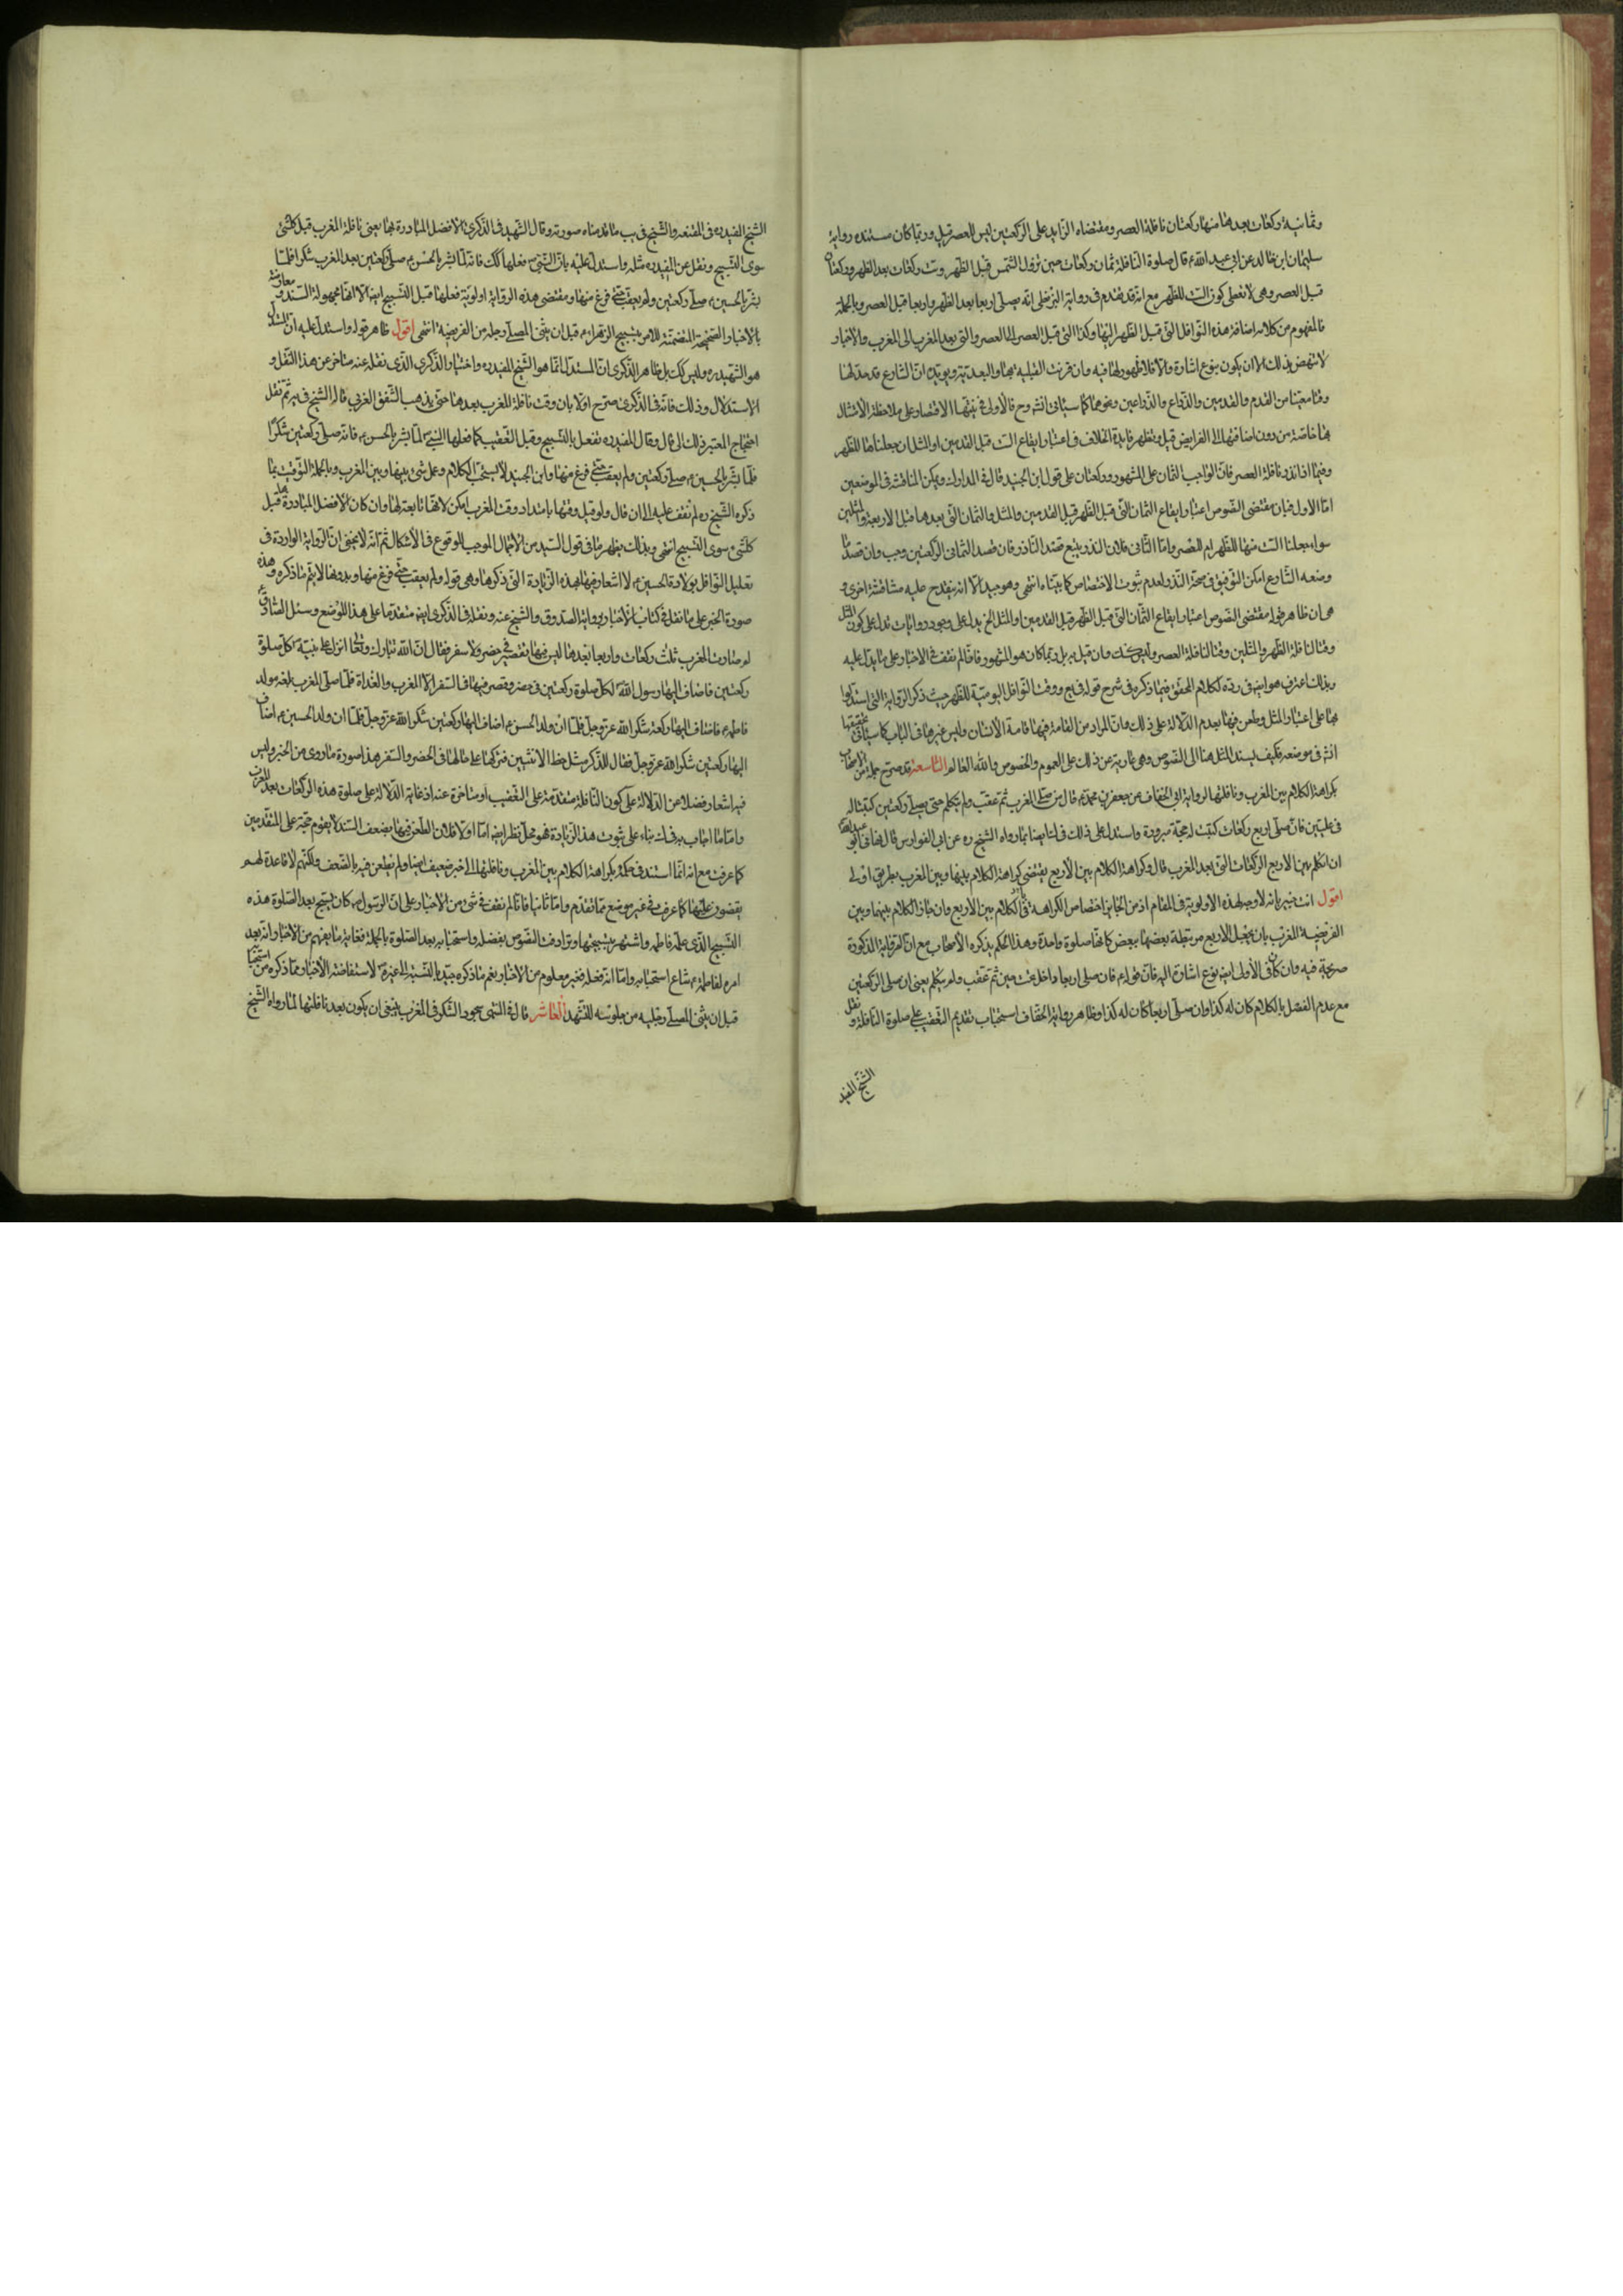 وثمانية ركعات بعدها منها ركعتان نافلة العصر ومقتضاه الزايد على الركعتين ليس للعصر قيل وربما كان مستنده رواية
سليمان ابن خالد عن ابي عبد الله ع قال صلوة النافلة ثمان ركعات حين تزول الشمس قبل الظهر وست ركعات بعد الظهر وركعتان
قبل العصر وهي لا تعطي كون الست للظهر مع انه قد يقدم في رواية البزنطي انه يصلي اربعا بعد الظهر واربعا قبل العصر وبالجملة
فالمفهوم من كلامه اضافة هذه النوافل التي قبل الظهر اليها وكذا التي قبل العصر الى العصر والتي بعد المغرب الى المغرب والاخبار
لا تنهض بذلك الا ان يكون بنوع اشارة والا فلا ظهور لها فيه وان قرنت القبلية بها والبعدية ويؤيده ان الشارع قد حد لها
وقتا معينا من القدم والقدمين والذراع والذراعين ونحوهما كما سياتي انش وح فالاولى في نيتها الاقتصار على ملاحظة الامتثال
بها خاصة من دون اضافتها الى الفرايض قيل وتظهر فايدة الخلاف في اعتبار ايقاع الست قبل القدمين او المثل ان جعلناها للظهر
وفيما اذا نذر نافلة العصر فان الواجب الثمان على المشهور وركعتان على قول ابن الجنيد قال في المدارك ويمكن المناقشة في الموضعين
اما الاول فبان مقتضى النصوص اعتبار ايقاع الثمان التي قبل الظهر قبل القدمين والمثل والثمان التي بعدها قبل الاربعة والمثلين
سواء جعلنا الست منها للظهر ام للعصر واما الثاني فلان النذر يتبع قصد الناذر فان قصد الثماني او الركعتين وجب وان قصد ما
وضعه الشارع امكن التوقف في صحة النذر لعدم ثبوت الاختصاص كما بيناه انتهى وهو جيد الا انه يقدح عليه مناقشة اخرى و
هي ان ظاهر قوله مقتضى النصوص اعتبار ايقاع الثمان التي قبل الظهر قبل القدمين او المثل الخ يدل على وجود روايات تدل على كون المثل
وقتا لنافلة الظهر والمثلين وقتا لنافلة العصر وليس كذلك وان قيل به بل ربما كان هو المشهور فانا لم نقف في الاخبار على ما يدل عليه
وبذلك اعترف هو ايضا في رده لكلام المحقق فيما ذكره في شرح قوله في يع ووقت النوافل اليومية للظهر حيث ذكر الرواية التي استدلوا
بها على اعتبار المثل وطعن فيها بعدم الدلالة على ذلك وان المراد من القامة فيها قامة الانسان وليس غيرها في الباب كما سياتي تحقيقها
انش في موضعه فكيف يسند المثل هنا الى النصوص وهي عارية عن ذلك على العموم والخصوص والله العالم التاسعة قد صرح جملة من الاصحاب
بكراهة الكلام بين المغرب ونافلتها لرواية ابي الخفاف عن جعفر بن محمد ع قال من صلى المغرب ثم عقب ولم يتكلم حتى يصلي ركعتين كتبتا له
في عليين فان صلى اربع ركعات كتبت له حجة مبرورة واستدل على ذلك في ك ايضا بما رواه الشيخ ره عن ابي الفوارس قال نهاني ابو عبد الله
ان اتكلم بين الاربع الركعات التي بعد المغرب قال وكراهة الكلام بين الاربع يقتضي كراهة الكلام بينها وبين المغرب بطريق اولى
اقول انت خبير بانه لا وجه لهذه الاولوية في المقام اذ من الجايز اختصاص الكراهة في الكلام بين الاربع وان جاز الكلام بينهما وبين
الفريضة المغرب بان يجعل الاربع مرتبطة بعضها ببعض كانها صلوة واحدة وهذا الحكم يذكره الاصحاب مع ان الرواية المذكورة
صريحة فيه وان كان في الاولى ايضا نوع اشارة اليه فان قوله ع فان صلى اربعا داخل تحت حين ثم عقب ولم يتكلم يعني ان صلى الركعتين
مع عدم الفصل بالكلام كان له كذا وان صلى اربعا كان له كذا وظاهر رواية الخفاف استحباب تقديم التعقيب على صلوة النافلة ونقل
الشيخ المفيد
الشيخ المفيد ره في المقنعه والشيخ في يب ما قدمناه صورته وقال الشهيد في الذكرى الافضل المبادرة بها يعني نافلة المغرب قبل كل شئ
سوى التسبيح ونقل عن المفيد ره مثله واستدل عليه بان النبي ص فعلها كك فانه لما بشر بالحسن ع صلى ركعتين بعد المغرب شكرا فلما
بشر بالحسين ع صلى ركعتين ولم يعقب حتى فرغ منها ومقتضى هذه الرواية اولوية فعلها قبل التسبيح ايضا الا انها مجهولة السند ومعارضة
بالاخبار الصحيحة المتضمنة للامر بتسبيح الزهراء ع قبل ان يثني المصلي رجليه من الفريضة انتهى اقول ظاهر قوله واستدل عليه ان المستدل
هو الشهيد ره وليس كك بل ظاهر الذكرى ان المستدل انما هو الشيخ المفيد ره واختيار الذكرى الذي نقله عنه متاخر عن هذا النقل و
الاستدلال وذلك فانه في الذكرى صرح اولا بان وقت نافلة المغرب بعدها حتى يذهب الشفق الغربي قاله الشيخ في يه ثم نقل
احتجاج المعتبر لذلك الى ان قال وقال المفيد ره تفعل بالتسبيح وقبل التعقيب كما فعلها النبي ص لما بشر بالحسن ع فانه صلى ركعتين شكرا
فلما بشر بالحسين ع صلى ركعتين ولم يعقب حتى فرغ منها وابن الجنيد لا يستحب الكلام وعمل شئ بينها وبين المغرب وبالجملة التوقيت بما
ذكره الشيخ ره لم نقف عليه الى ان قال ولو قيل وقتها بامتداد وقت المغرب امكن لانها تابعة لها وان كان الافضل المبادرة بها قبل
كل شئ سوى التسبيح انتهى وبذلك يظهر ما في قول السيد من الاجمال الموجب للوقوع في الاشكال ثم انه لا يخفى ان الرواية الواردة في
تعليل النوافل بولادة الحسين ع لا اشعار فيها بهذه الزيادة التي ذكرها وهي قوله ولم يعقب حتى فرغ منها وبدونها لا يتم ما ذكره وهذه
صورة الخبر على ما نقل في كتاب الاخبار برواية الصدوق والشيخ عنه ونقله في الذكرى ايضا متقدما على هذا الموضع وسئل الصادق ع
لم صارت المغرب ثلث ركعات واربعا بعدها ليس فيها تقصير في حضر ولا سفر فقال ان الله تبارك وتعالى انزل على نبيه كل صلوة
ركعتين فاضاف اليها رسول الله ص لكل صلوة ركعتين في حضر وقصر فيها في السفر الا المغرب والغداة فلما صلى المغرب بلغه مولد
فاطمة ع فاضاف اليها ركعة شكرا لله عز وجل فلما ان ولد الحسن ع اضاف اليها ركعتين شكرا لله عز وجل فلما ان ولد الحسين ع اضاف
اليها ركعتين شكرا لله عز وجل فقال للذكر مثل حظ الانثيين فتركها على حالها في الحضر والسفر هذا صورة ما روي من الخبر وليس
فيه اشعار فضلا عن الدلالة على كون النافلة متقدمة على التعقيب او متاخرة عنه اذ غاية الدلالة على صلوة هذه الركعات بعد المغرب
واما ما اجاب به في ك بناء على ثبوت هذه الزيادة فهو محل نظر ايضا اما اولا فلان الطعن فيها بضعف السند لا يقوم حجة على المتقدمين
كما عرفت مع انه انما استند في حكمه بكراهة الكلام بين المغرب ونافلتها الى خبر ضعيف ايضا ولم يطعن فيه بالضعف ولكنهم لا قاعدة لهم
يقفون عليها كما عرفت في غير موضع مما تقدم واما ثانيا فانا لم نقف في شئ من الاخبار على ان الرسول ص كان يسبح بعد الصلوة هذه
التسبيح الذي علمه فاطمة واشتهر بتسبيحها وترادف النصوص بفضله واستحبابه بعد الصلوة بالجملة فغاية ما يفهم من الاخبار انه بعد
امره لفاطمة ع شاع استحبابه واما انه ص فعله فغير معلوم من الاخبار نعم ما ذكره جيد بالنسبة الى غيره ص لاستفاضة الاخبار بما ذكره من استحبابه
قبل ان يثني المصلي رجليه من جلوسه للتشهد العاشر قال في المنتهى سجود الشكر في المغرب ينبغي ان يكون بعد نافلتها لما رواه الشيخ